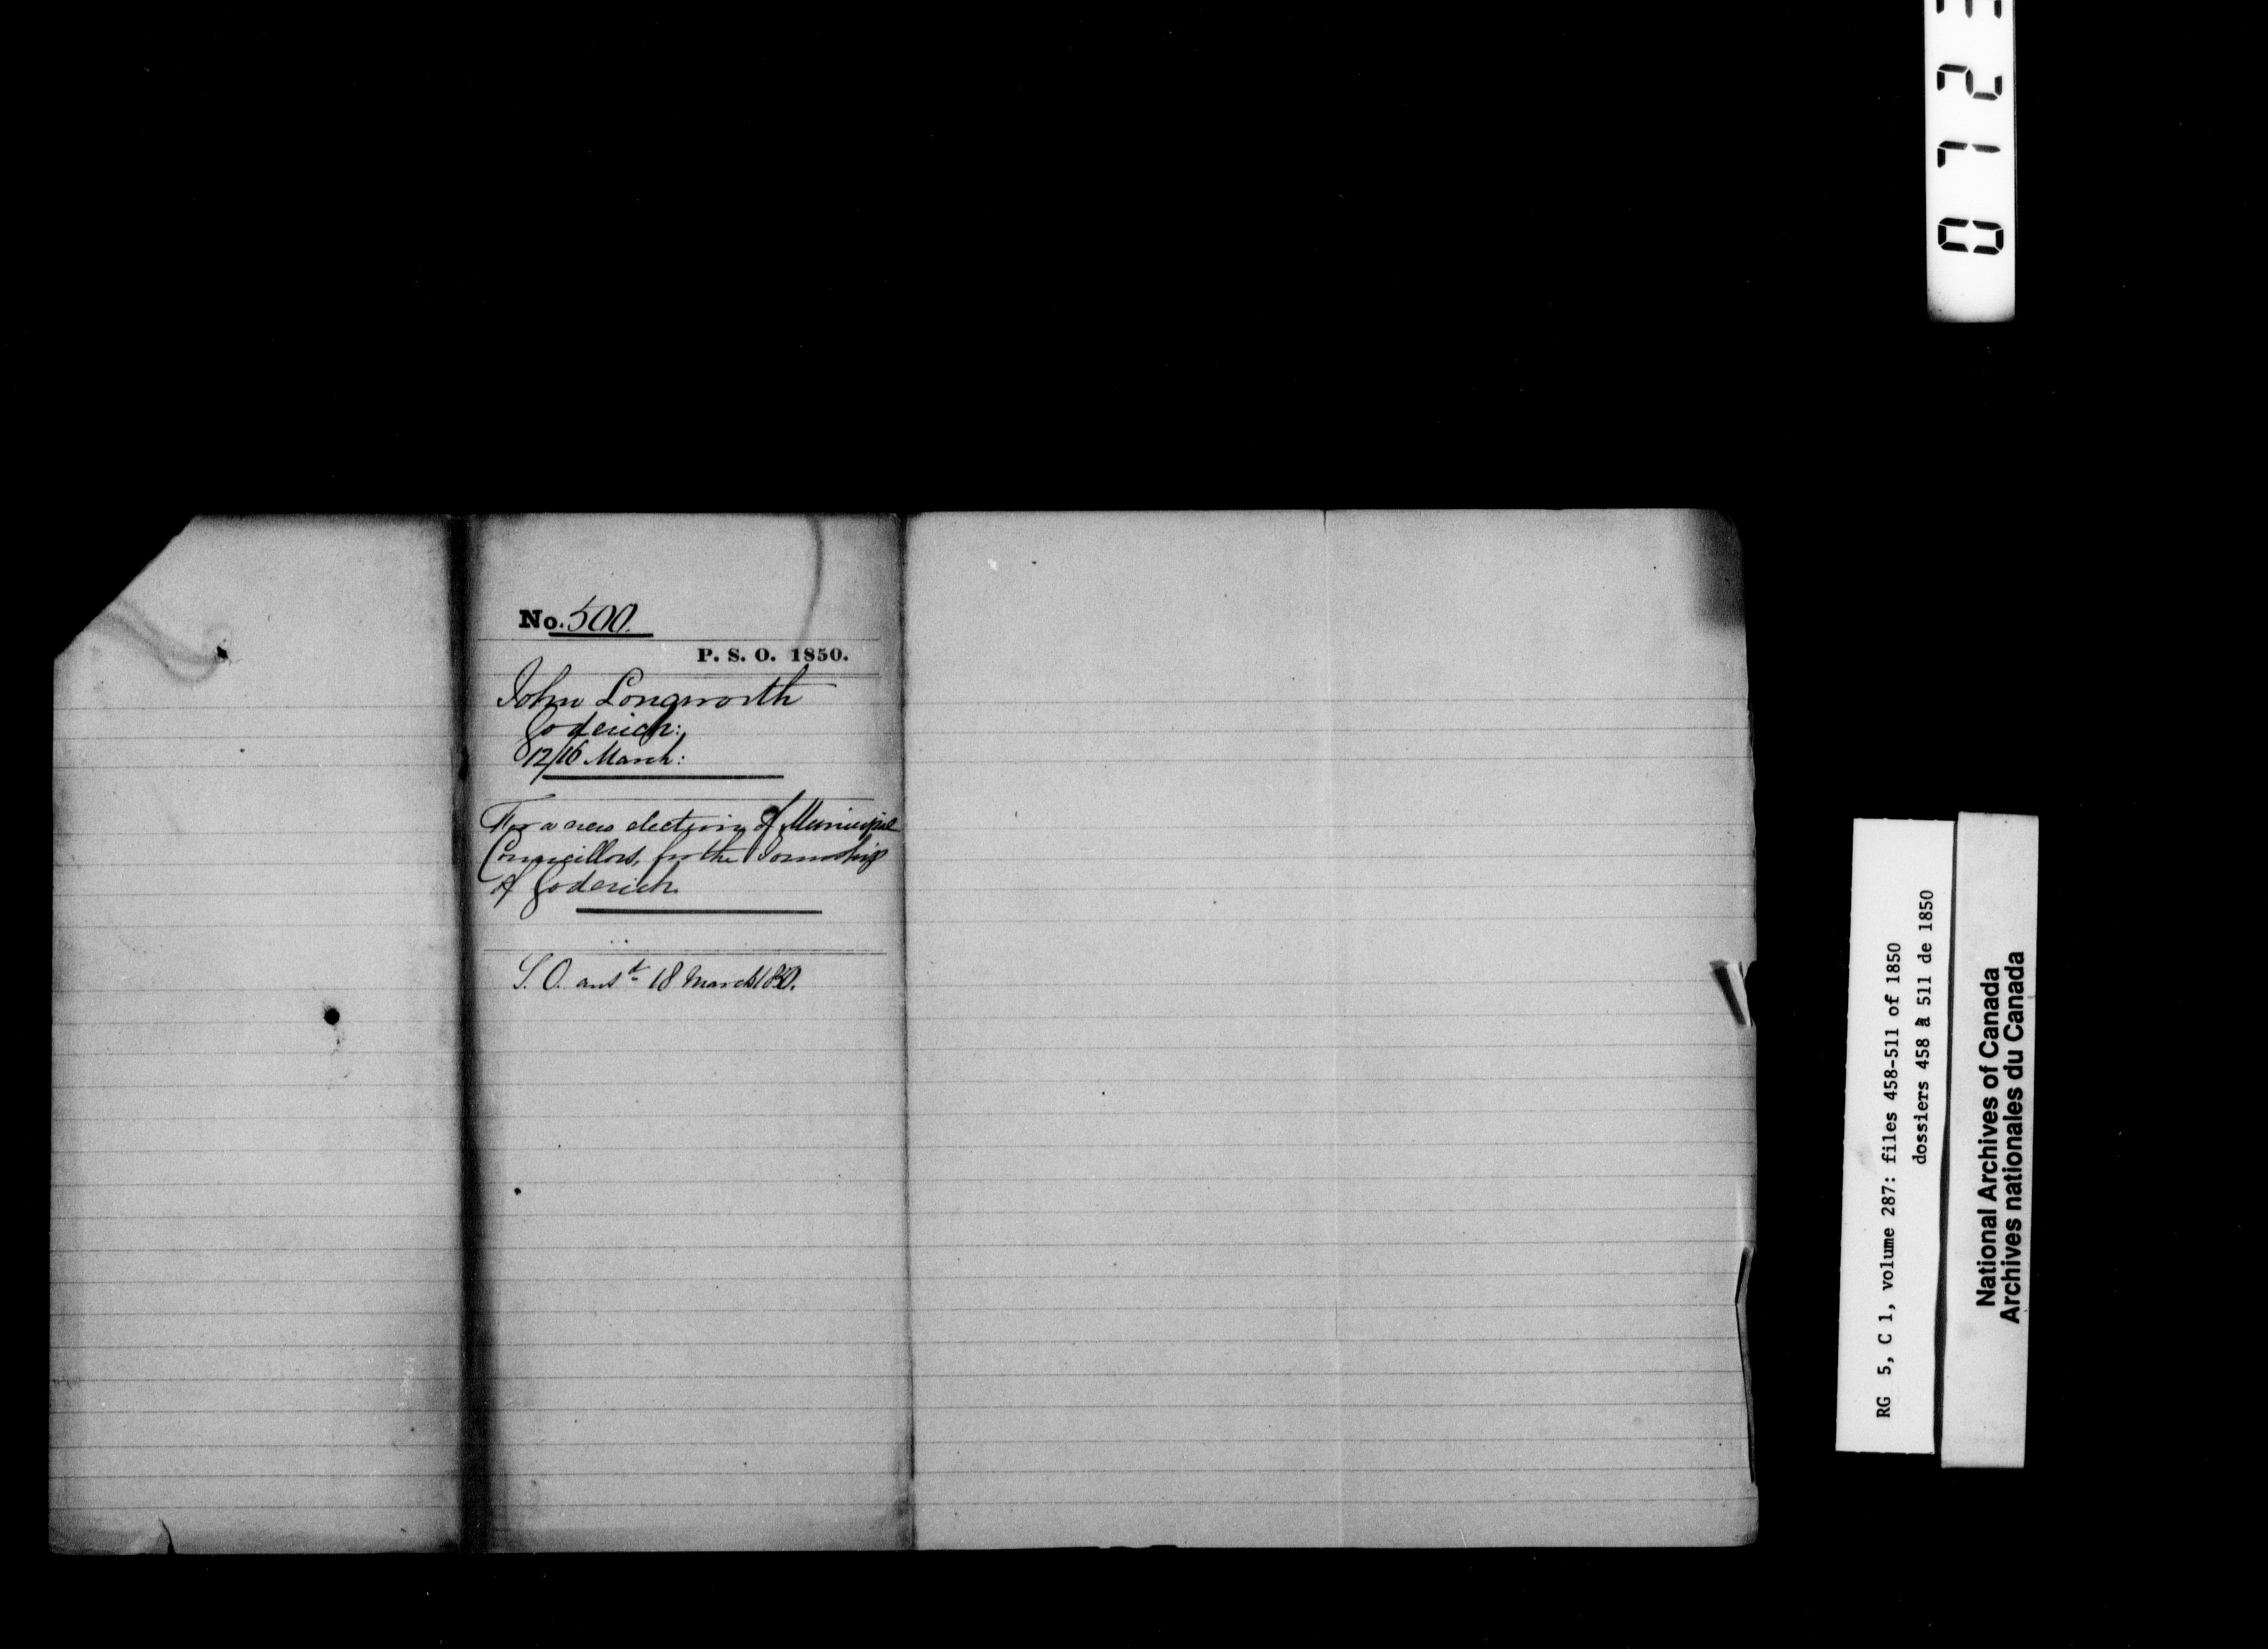 No. 500.
P. S. O. 1850.
John Longworth
Goderich:
12/16 March:
For a new election of Municipal
Councillors, for the Township
of Goderich
S. O. ansd 18 March 1850.
0723
RG 5, C 1, volume 287: files 458-511 of 1850
dossiers 458 à 511 de 1850
National Archives of Canada
Archives nationales du Canada